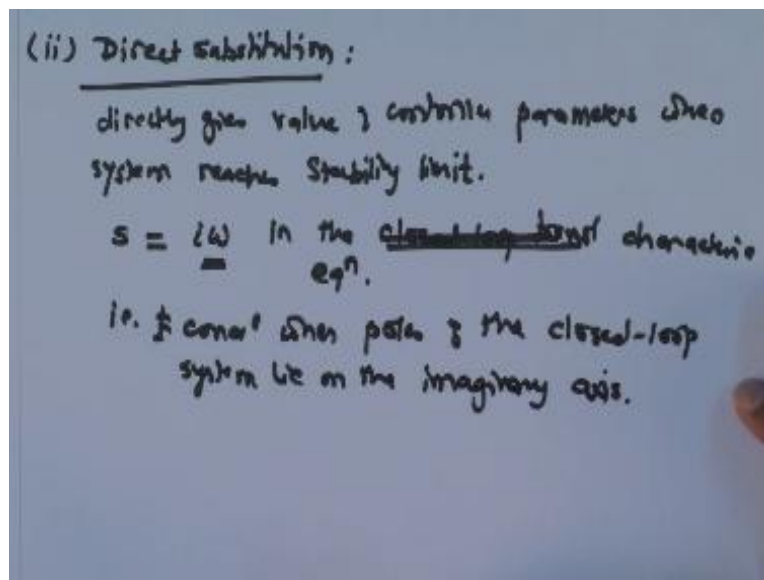 (ii) Direct substitution:
directly gives value of controller parameters when
system reaches Stability limit.
s = iω in the characteristic
eqn.
ie. when poles of the closed-loop
system lie on the imaginary axis.